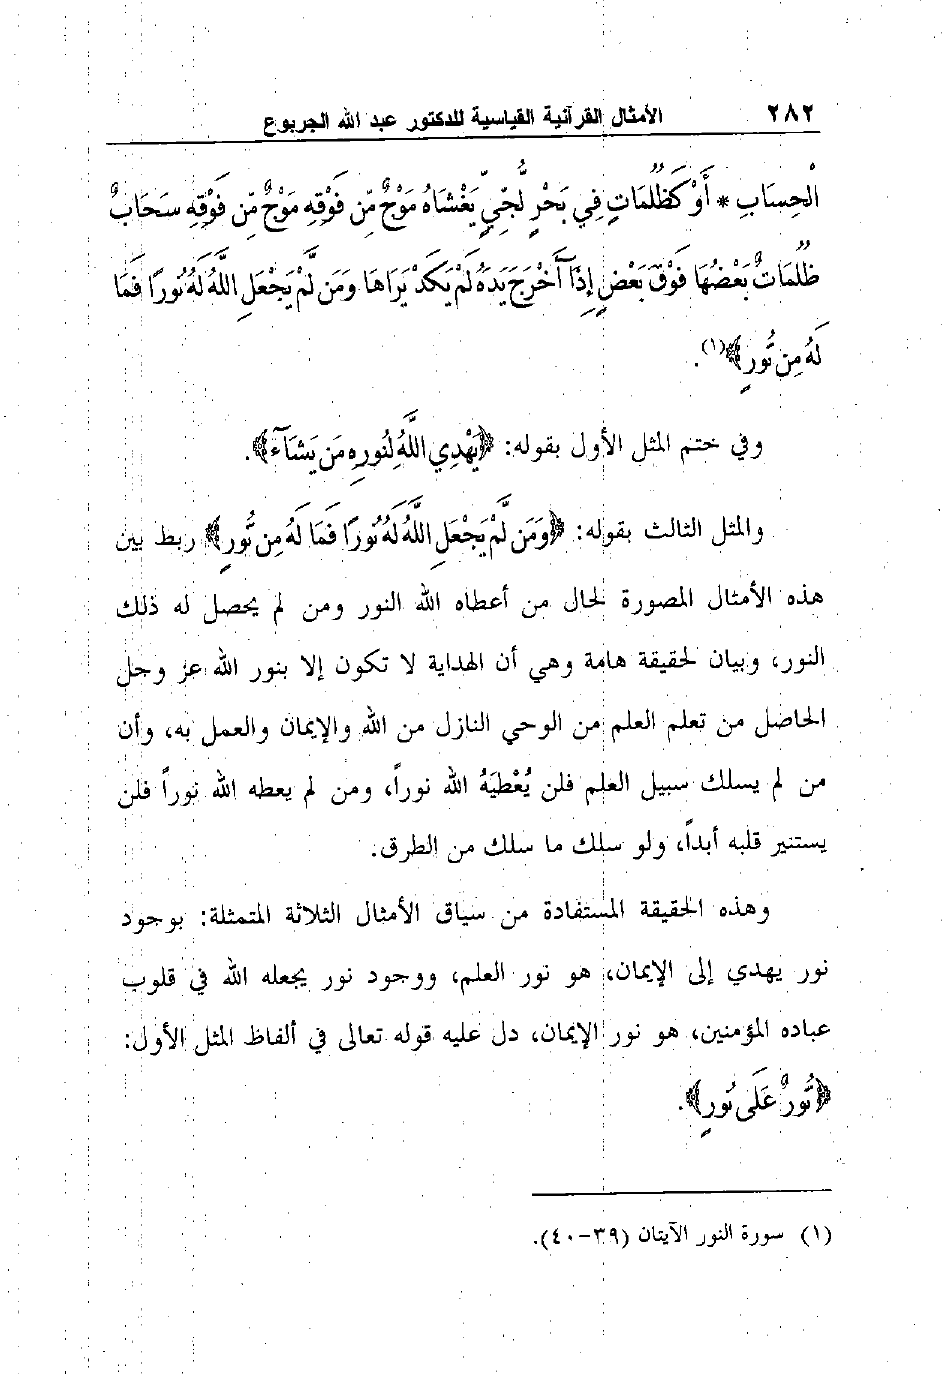 ٢٨٢ الأمثال القرآنية القياسية للدكتور عبد الله الجربوع
الْحِسَابِ * أَوْ كَظُلُمَاتٍ فِي بَحْرٍ لُّجِّيٍّ يَغْشَاهُ مَوْجٌ مِّن فَوْقِهِ مَوْجٌ مِّن فَوْقِهِ سَحَابٌ
ظُلُمَاتٌ بَعْضُهَا فَوْقَ بَعْضٍ إِذَآ أَخْرَجَ يَدَهُ لَمْ يَكَدْ يَرَاهَا وَمَن لَّمْ يَجْعَلِ اللَّهُ لَهُ نُورًا فَمَا
لَهُ مِن نُّورٍ﴾(١).
وفي ختم المثل الأول بقوله: ﴿يَهْدِي اللَّهُ لِنُورِهِ مَن يَشَآءُ﴾.
والمثل الثالث بقوله: ﴿وَمَن لَّمْ يَجْعَلِ اللَّهُ لَهُ نُورًا فَمَا لَهُ مِن نُّورٍ﴾ ربط بين
هذه الأمثال المصورة لحال من أعطاه الله النور ومن لم يحصل له ذلك
النور، وبيان لحقيقة هامة وهي أن الهداية لا تكون إلا بنور الله عز وجل
الحاصل من تعلم العلم من الوحي النازل من الله والإيمان والعمل به، وأن
من لم يسلك سبيل العلم فلن يُعْطِيَهُ الله نوراً، ومن لم يعطه الله نوراً فلن
يستنير قلبه أبداً، ولو سلك ما سلك من الطرق.
وهذه الحقيقة المستفادة من سياق الأمثال الثلاثة المتمثلة: بوجود
نور يهدي إلى الإيمان، هو نور العلم، ووجود نور يجعله الله في قلوب
عباده المؤمنين، هو نور الإيمان، دل عليه قوله تعالى في ألفاظ المثل الأول:
﴿نُّورٌ عَلَى نُورٍ﴾.
(١) سورة النور الآيتان (٣٩-٤٠).